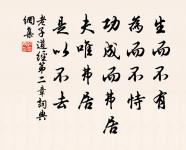 生而不有
為而不恃
功成而弗居
夫唯弗居
是以不去
老子道經第二章詞典
網集